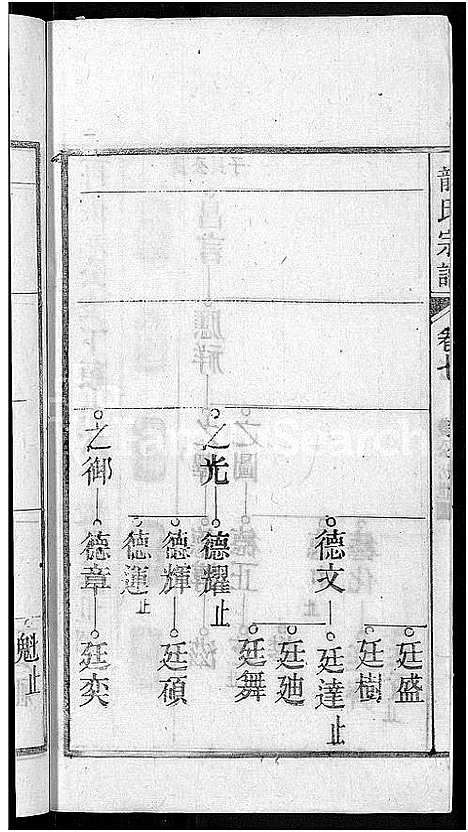 龍氏宗譜
卷七
廷盛
廷樹
德文
廷達止
廷廸
廷舞
之光
德耀止
德輝
廷碩
德運止
之御
德章
廷奕
魁止